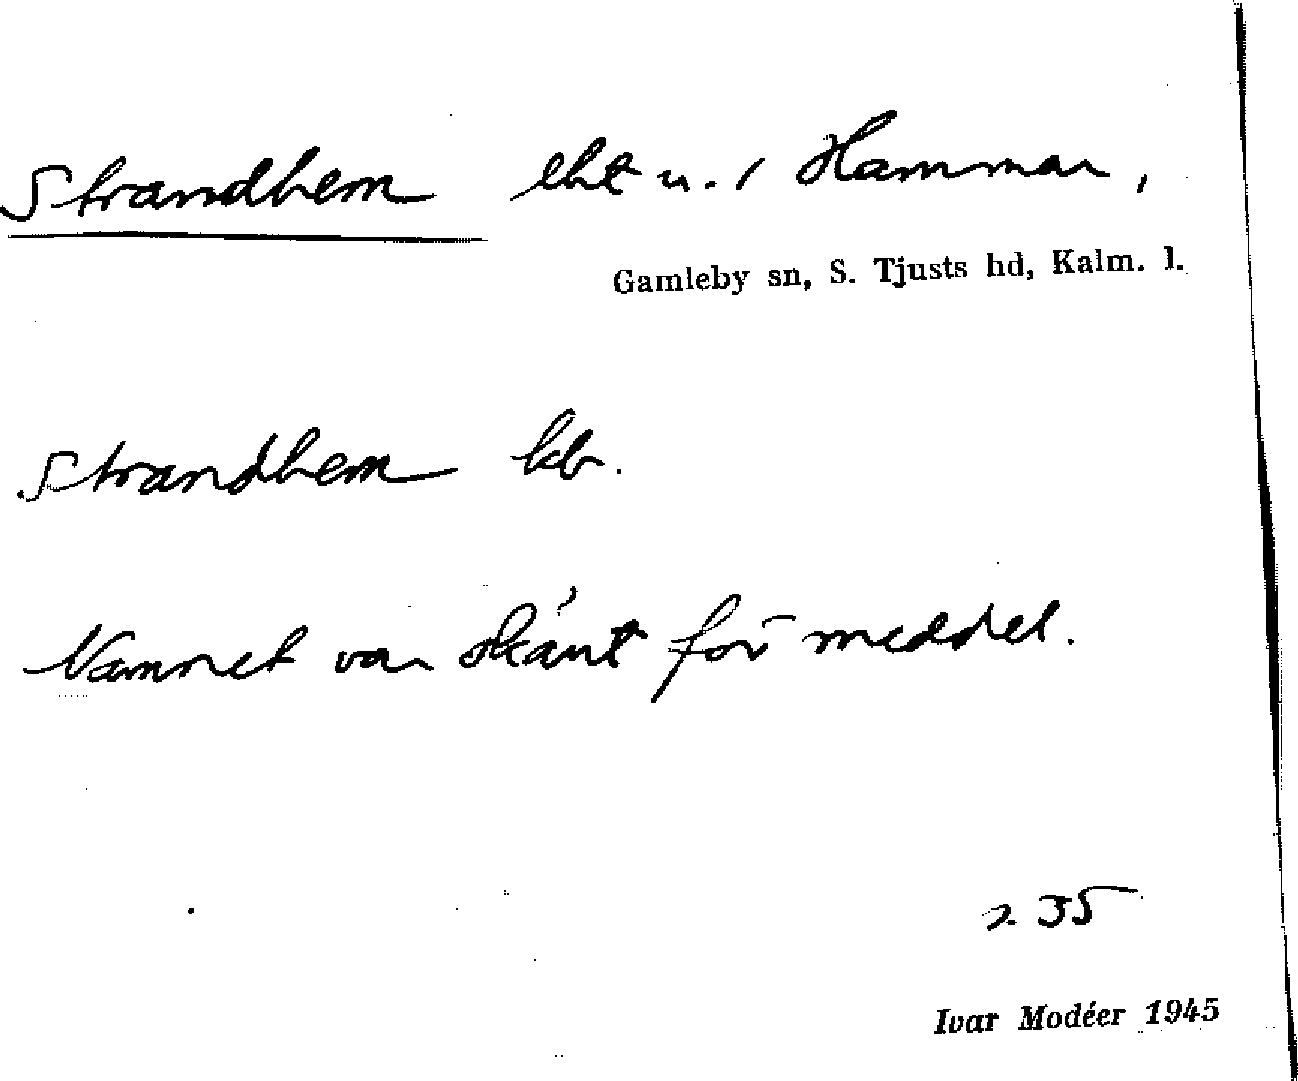 Strandhem lht u. / Hammar,
Gamleby sn, S. Tjusts hd, Kalm. l.
Strandhem kb.
Namnet var okänt för meddel.
235
Ivar Modéer 1945